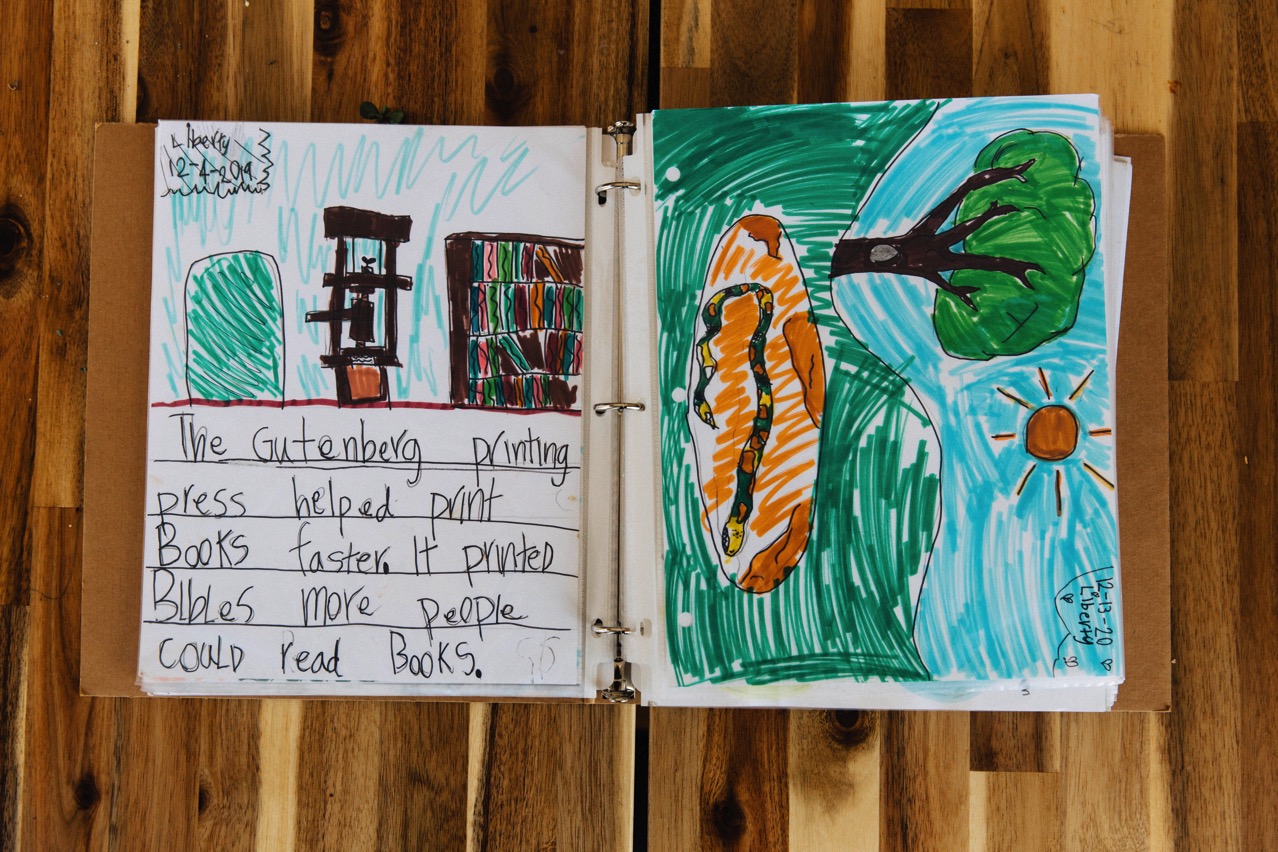 Liberty
12-4-2019
The Gutenberg printing
press helped print
Books faster. It printed
Bibles more people
could read Books.
12-13-20
Liberty